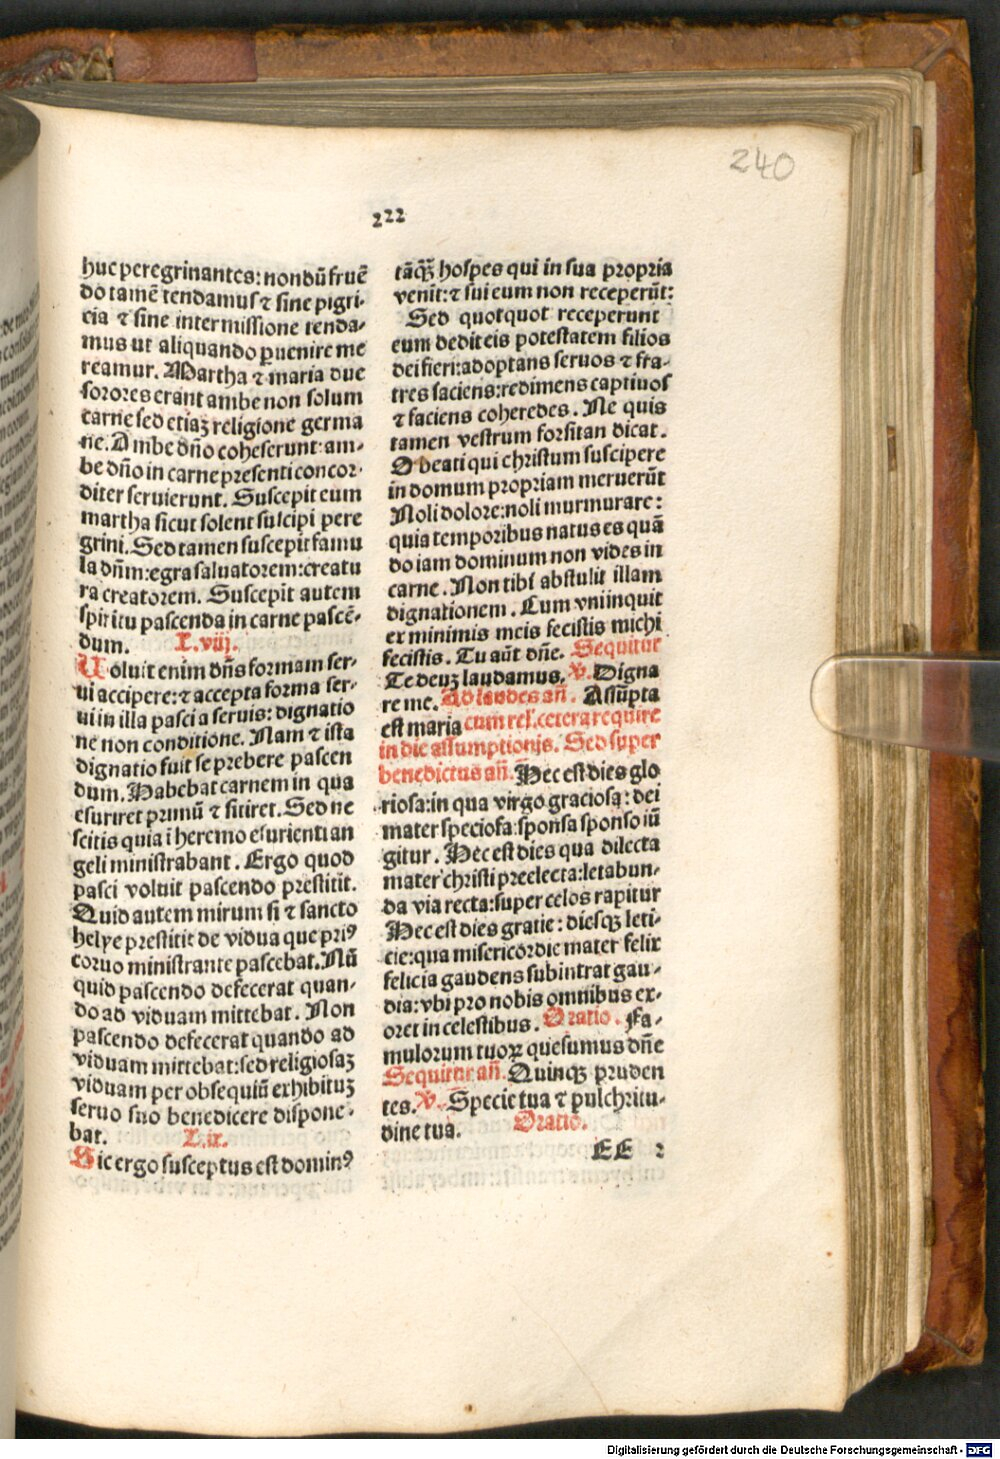 240
222
huc peregrinantes: nondũ fruẽ
do tamẽ tendamus ⁊ sine pigri-
cia ⁊ sine intermissione tenda-
mus ut aliquando ꝑuenire me
reamur. Martha ⁊ maria due
sorores erant ambe non solum
carne sed etiaꝫ religione germa
ne. Ambe dño coheserunt: am-
be dño in carne presenti concor-
diter seruierunt. Suscepit eum
martha sicut solent suscipi pere
grini. Sed tamen suscepit famu
la dñm: egra saluatorem: creatu
ra creatorem. Suscepit autem
spiritu pascenda in carne pascẽ-
dum. L. viij.
Uoluit enim dñs formam ser-
ui accipere: ⁊ accepta forma ser-
ui in illa pasci a seruis: dignatio
ne non conditione. Nam ⁊ ista
dignatio fuit se prebere pascen
dum. Habebat carnem in qua
esuriret primũ ⁊ sitiret. Sed ne
scitis quia ĩ heremo esurienti an
geli ministrabant. Ergo quod
pasci voluit pascendo prestitit.
Quid autem mirum si ⁊ sancto
helye prestitit de vidua que priꝰ
coruo ministrante pascebat. Nũ
quid pascendo defecerat quan-
do ad viduam mittebat. Non
pascendo defecerat quando ad
viduam mittebat: sed religiosaꝫ
viduam per obsequiũ exhibituꝫ
seruo suo benedicere dispone-
bat. L. ix.
Sic ergo susceptus est dominꝰ
tãꝗꝫ hospes qui in sua propria
venit: ⁊ sui eum non receperũt:
Sed quotquot receperunt
eum dedit eis potestatem filios
dei fieri: adoptans seruos ⁊ fra-
tres faciens: redimens captiuos
⁊ faciens coheredes. Ne quis
tamen vestrum forsitan dicat.
O beati qui christum suscipere
in domum propriam meruerũt
Noli dolore: noli murmurare:
quia temporibus natus es quã
do iam dominum non vides in
carne. Non tibi abstulit illam
dignationem. Cum vni inquit
ex minimis meis fecistis michi
fecistis. Tu aũt dñe. Sequitur
Te deuꝫ laudamus. ℣. Digna
re me. Ad laudes añ. Assũpta
est maria cum rel'. cetera require
in die assumptionis. Sed super
benedictus añ. Hec est dies glo
riosa: in qua virgo graciosa: dei
mater speciosa: sponsa sponso iũ
gitur. Hec est dies qua dilecta
mater christi preelecta: letabun-
da via recta: super celos rapitur
Hec est dies gratie: diesqꝫ leti-
cie: qua misericordie mater felix
felicia gaudens subintrat gau-
dia: vbi pro nobis omnibus ex-
oret in celestibus. Oratio. Fa-
mulorum tuoꝝ quesumus dñe
Sequitur añ. Quinqꝫ pruden
tes. ℣. Specie tua ⁊ pulchritu-
dine tua. Oratio.
EE 2
Digitalisierung gefördert durch die Deutsche Forschungsgemeinschaft - DFG